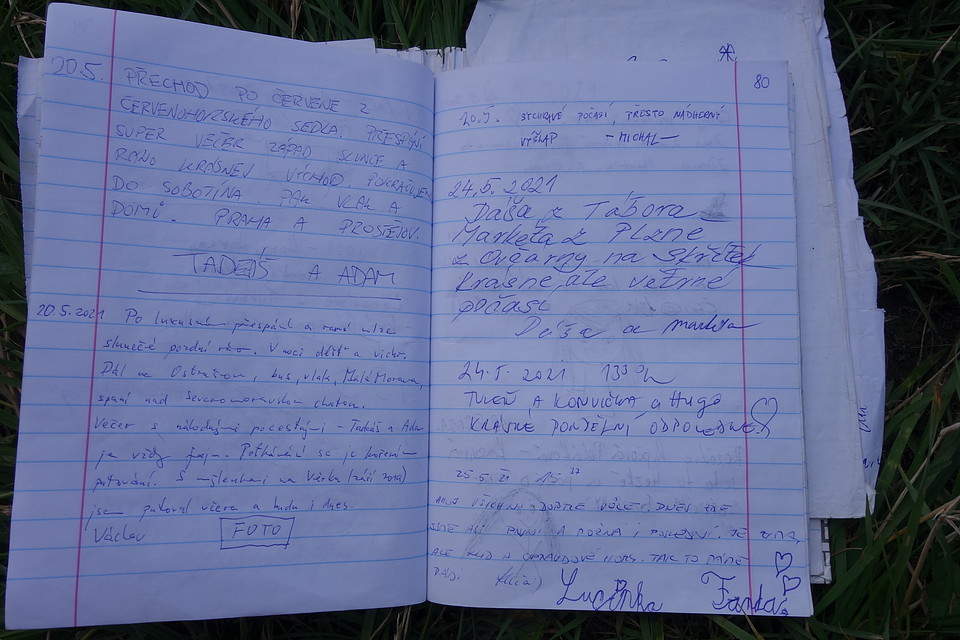 20.5. PŘECHOD PO ČERVENÉ Z
ČERVENOHORSKÉHO SEDLA. PŘESPÁNÍ
SUPER VEČER ZÁPAD SLUNCE A
RÁNO KRÁSNEJ VÝCHOD. POKRAČUJEM
DO SOBOTÍNA. PAK VLAK A
DOMŮ. PRAHA A PROSTĚJOV.
TADEÁŠ A ADAM
20.5.2021 Po luxusním přespání a ranní mlze
slunečné pozdní ráno. V noci déšť a vichr.
Dál na Ostružnou, bus, vlak, Malá Morava,
spaní nad Severomoravskou chatou.
Večer s náhodnými pocestnými - Tadeáš a Adam
je vždy fajn. Potkávání se je koření
putování. S myšlenkami na Věrku
jsem putoval včera a budu i dnes.
Václav
FOTO
80
20.5. SYCHRAVÉ POČASÍ, PŘESTO NÁDHERNÝ
VÝŠLAP - MICHAL -
24.5.2021
Dáša z Tábora
Markéta z Plzně
z Ovčárny na Skřítek
Krásné, ale větrné
počasí
Dáša a Markéta
24.5.2021 13
A KONVIČKA a Hugo
KRÁSNÉ PONDĚLNÍ ODPOLEDNE!
25.5.21 15
AHOJ VŠICHNI DOBŘÍ
JSME ASI PRVNÍ A MOŽNÁ I POSLEDNÍ. JE ZIMA,
ALE KLID A OPRAVDOVÉ HORY. TAK TO MÁME
RÁDI.
Lucinka